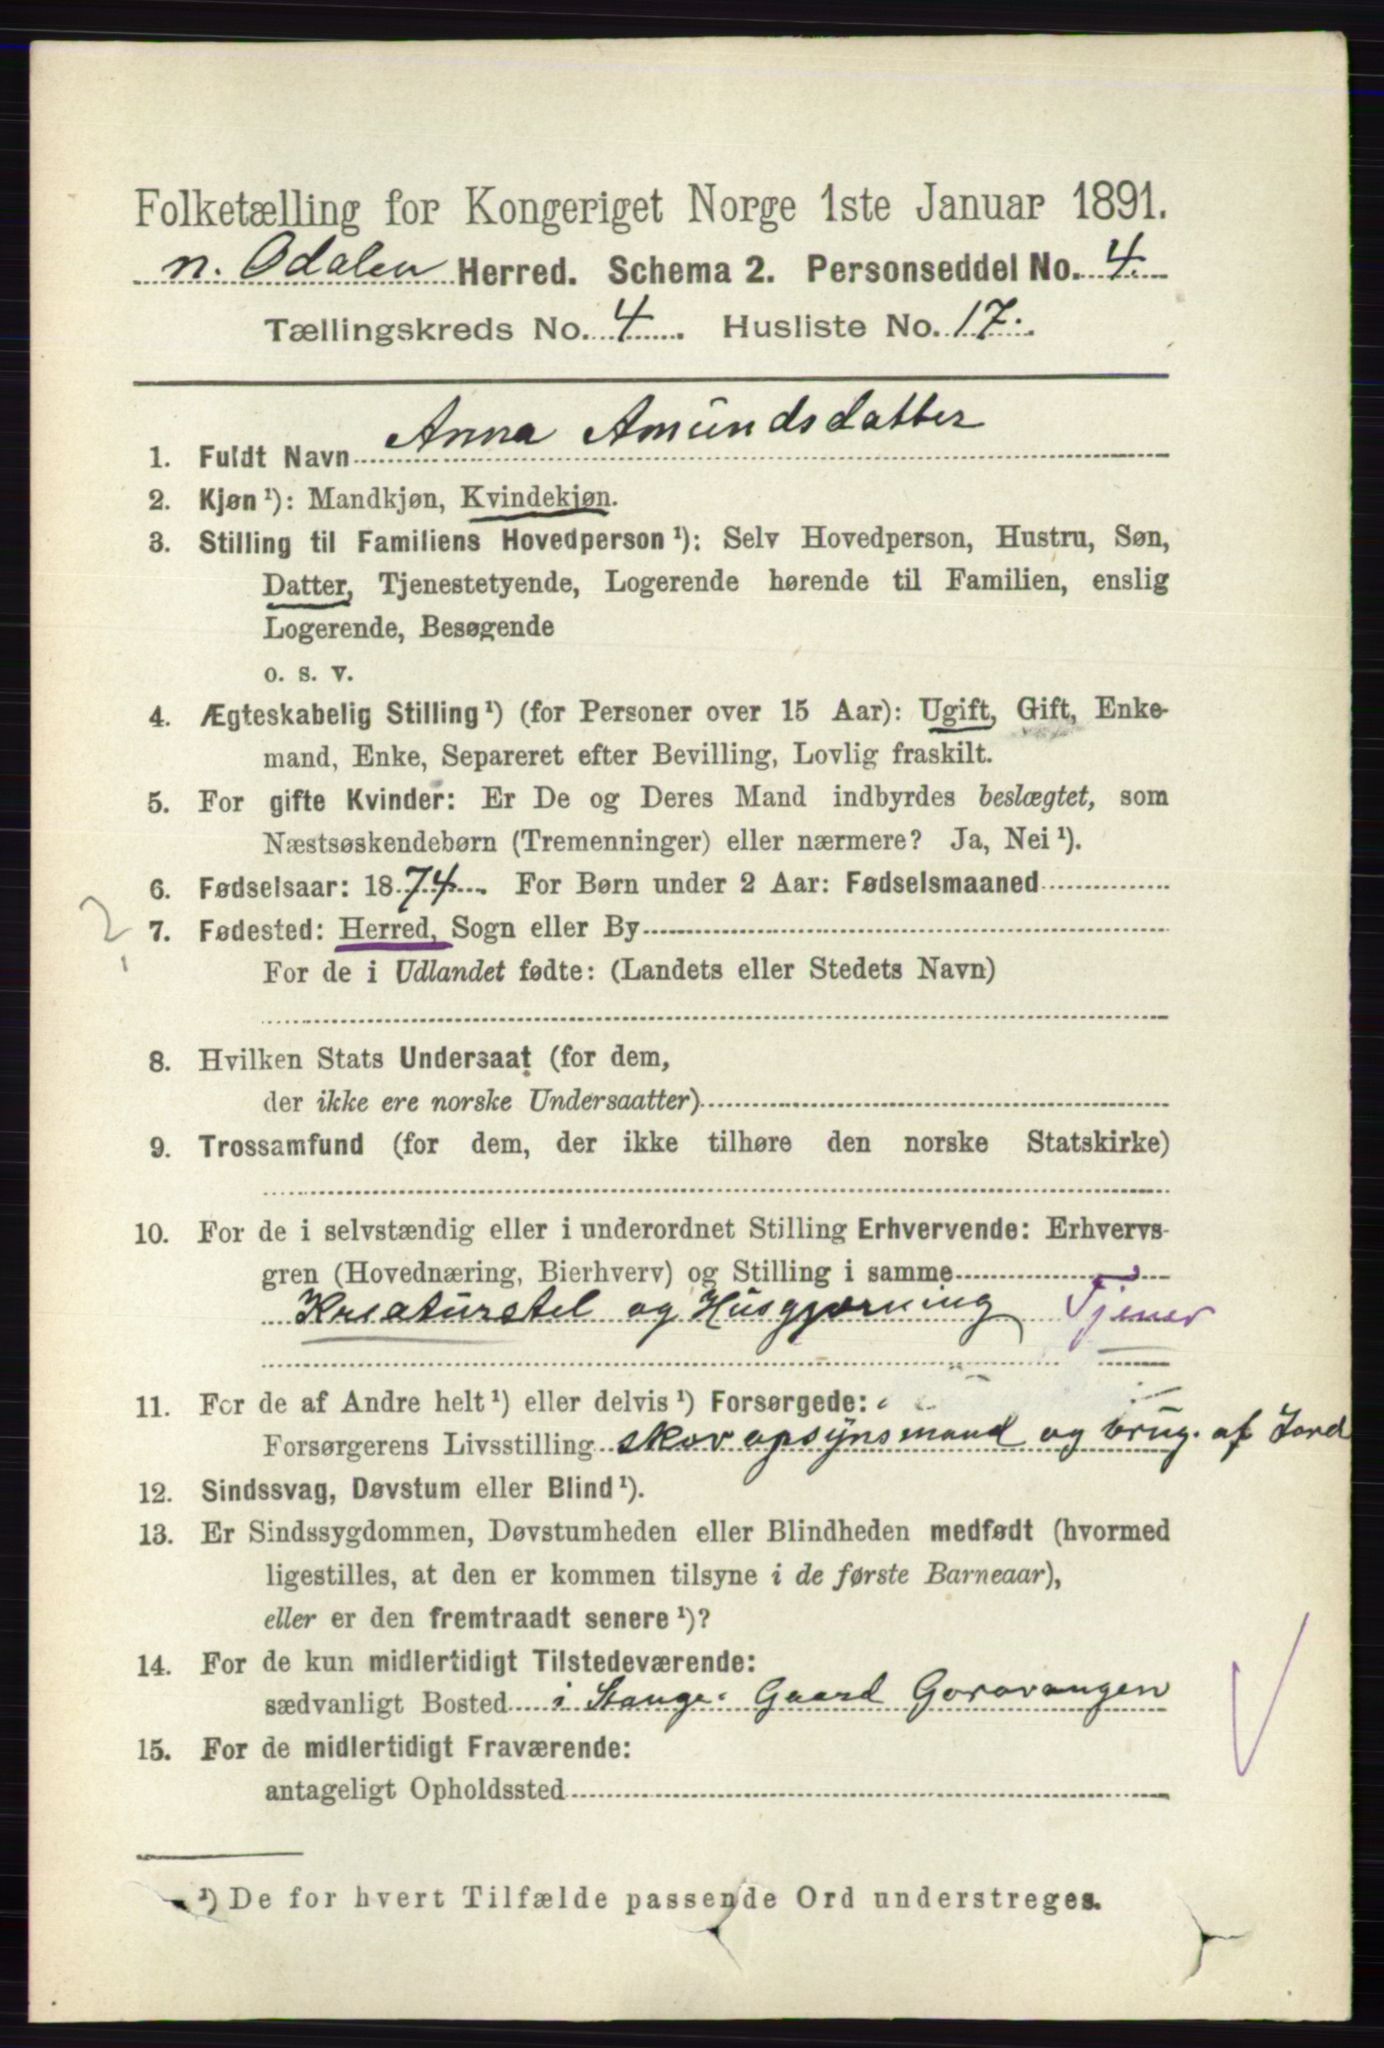 Folketælling for Kongeriget Norge 1ste Januar 1891.
n. Odalen Herred. Schema 2. Personseddel No. 4.
Tællingskreds No. 4. Husliste No. 17.
1. Fuldt Navn Anna Amundsdatter
2. Kjøn ¹): Mandkjøn, Kvindekjøn.
3. Stilling til Familiens Hovedperson ¹): Selv Hovedperson, Hustru, Søn,
Datter, Tjenestetyende, Logerende hørende til Familien, enslig
Logerende, Besøgende
o. s. v.
4. Ægteskabelig Stilling ¹) (for Personer over 15 Aar): Ugift, Gift, Enke-
mand, Enke, Separeret efter Bevilling, Lovlig fraskilt.
5. For gifte Kvinder: Er De og Deres Mand indbyrdes beslægtet, som
Næstsøskendebørn (Tremenninger) eller nærmere? Ja, Nei ¹).
6. Fødselsaar: 1874. For Børn under 2 Aar: Fødselsmaaned
? 7. Fødested: Herred, Sogn eller By
For de i Udlandet fødte: (Landets eller Stedets Navn)
8. Hvilken Stats Undersaat (for dem,
der ikke ere norske Undersaatter)
9. Trossamfund (for dem, der ikke tilhøre den norske Statskirke)
10. For de i selvstændig eller i underordnet Stilling Erhvervende: Erhvervs-
gren (Hovednæring, Bierhverv) og Stilling i samme
Kreaturstel og Husgjørning Tjener
11. For de af Andre helt ¹) eller delvis ¹) Forsørgede:
Forsørgerens Livsstilling skovopsynsmand og brug. af Jord
12. Sindssvag, Døvstum eller Blind ¹).
13. Er Sindssygdommen, Døvstumheden eller Blindheden medfødt (hvormed
ligestilles, at den er kommen tilsyne i de første Barneaar),
eller er den fremtraadt senere ¹)?
14. For de kun midlertidigt Tilstedeværende:
sædvanligt Bosted i Stange. Gaard
15. For de midlertidigt Fraværende:
antageligt Opholdssted
¹) De for hvert Tilfælde passende Ord understreges.